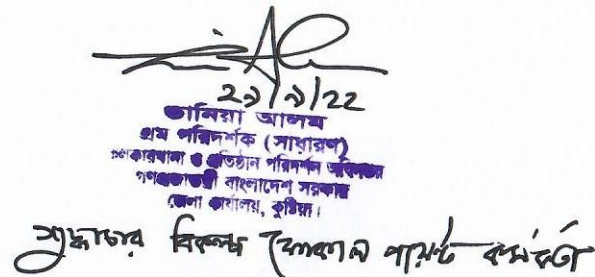 ২১/৯/২২
তানিয়া আলম
শ্রম পরিদর্শক (সাধারণ)
কলকারখানা ও প্রতিষ্ঠান পরিদর্শন অধিদপ্তর
গণপ্রজাতন্ত্রী বাংলাদেশ সরকার
জেলা কার্যালয়, কুষ্টিয়া।
শুদ্ধাচার বিকল্প ফোকাল পয়েন্ট কর্মকর্তা